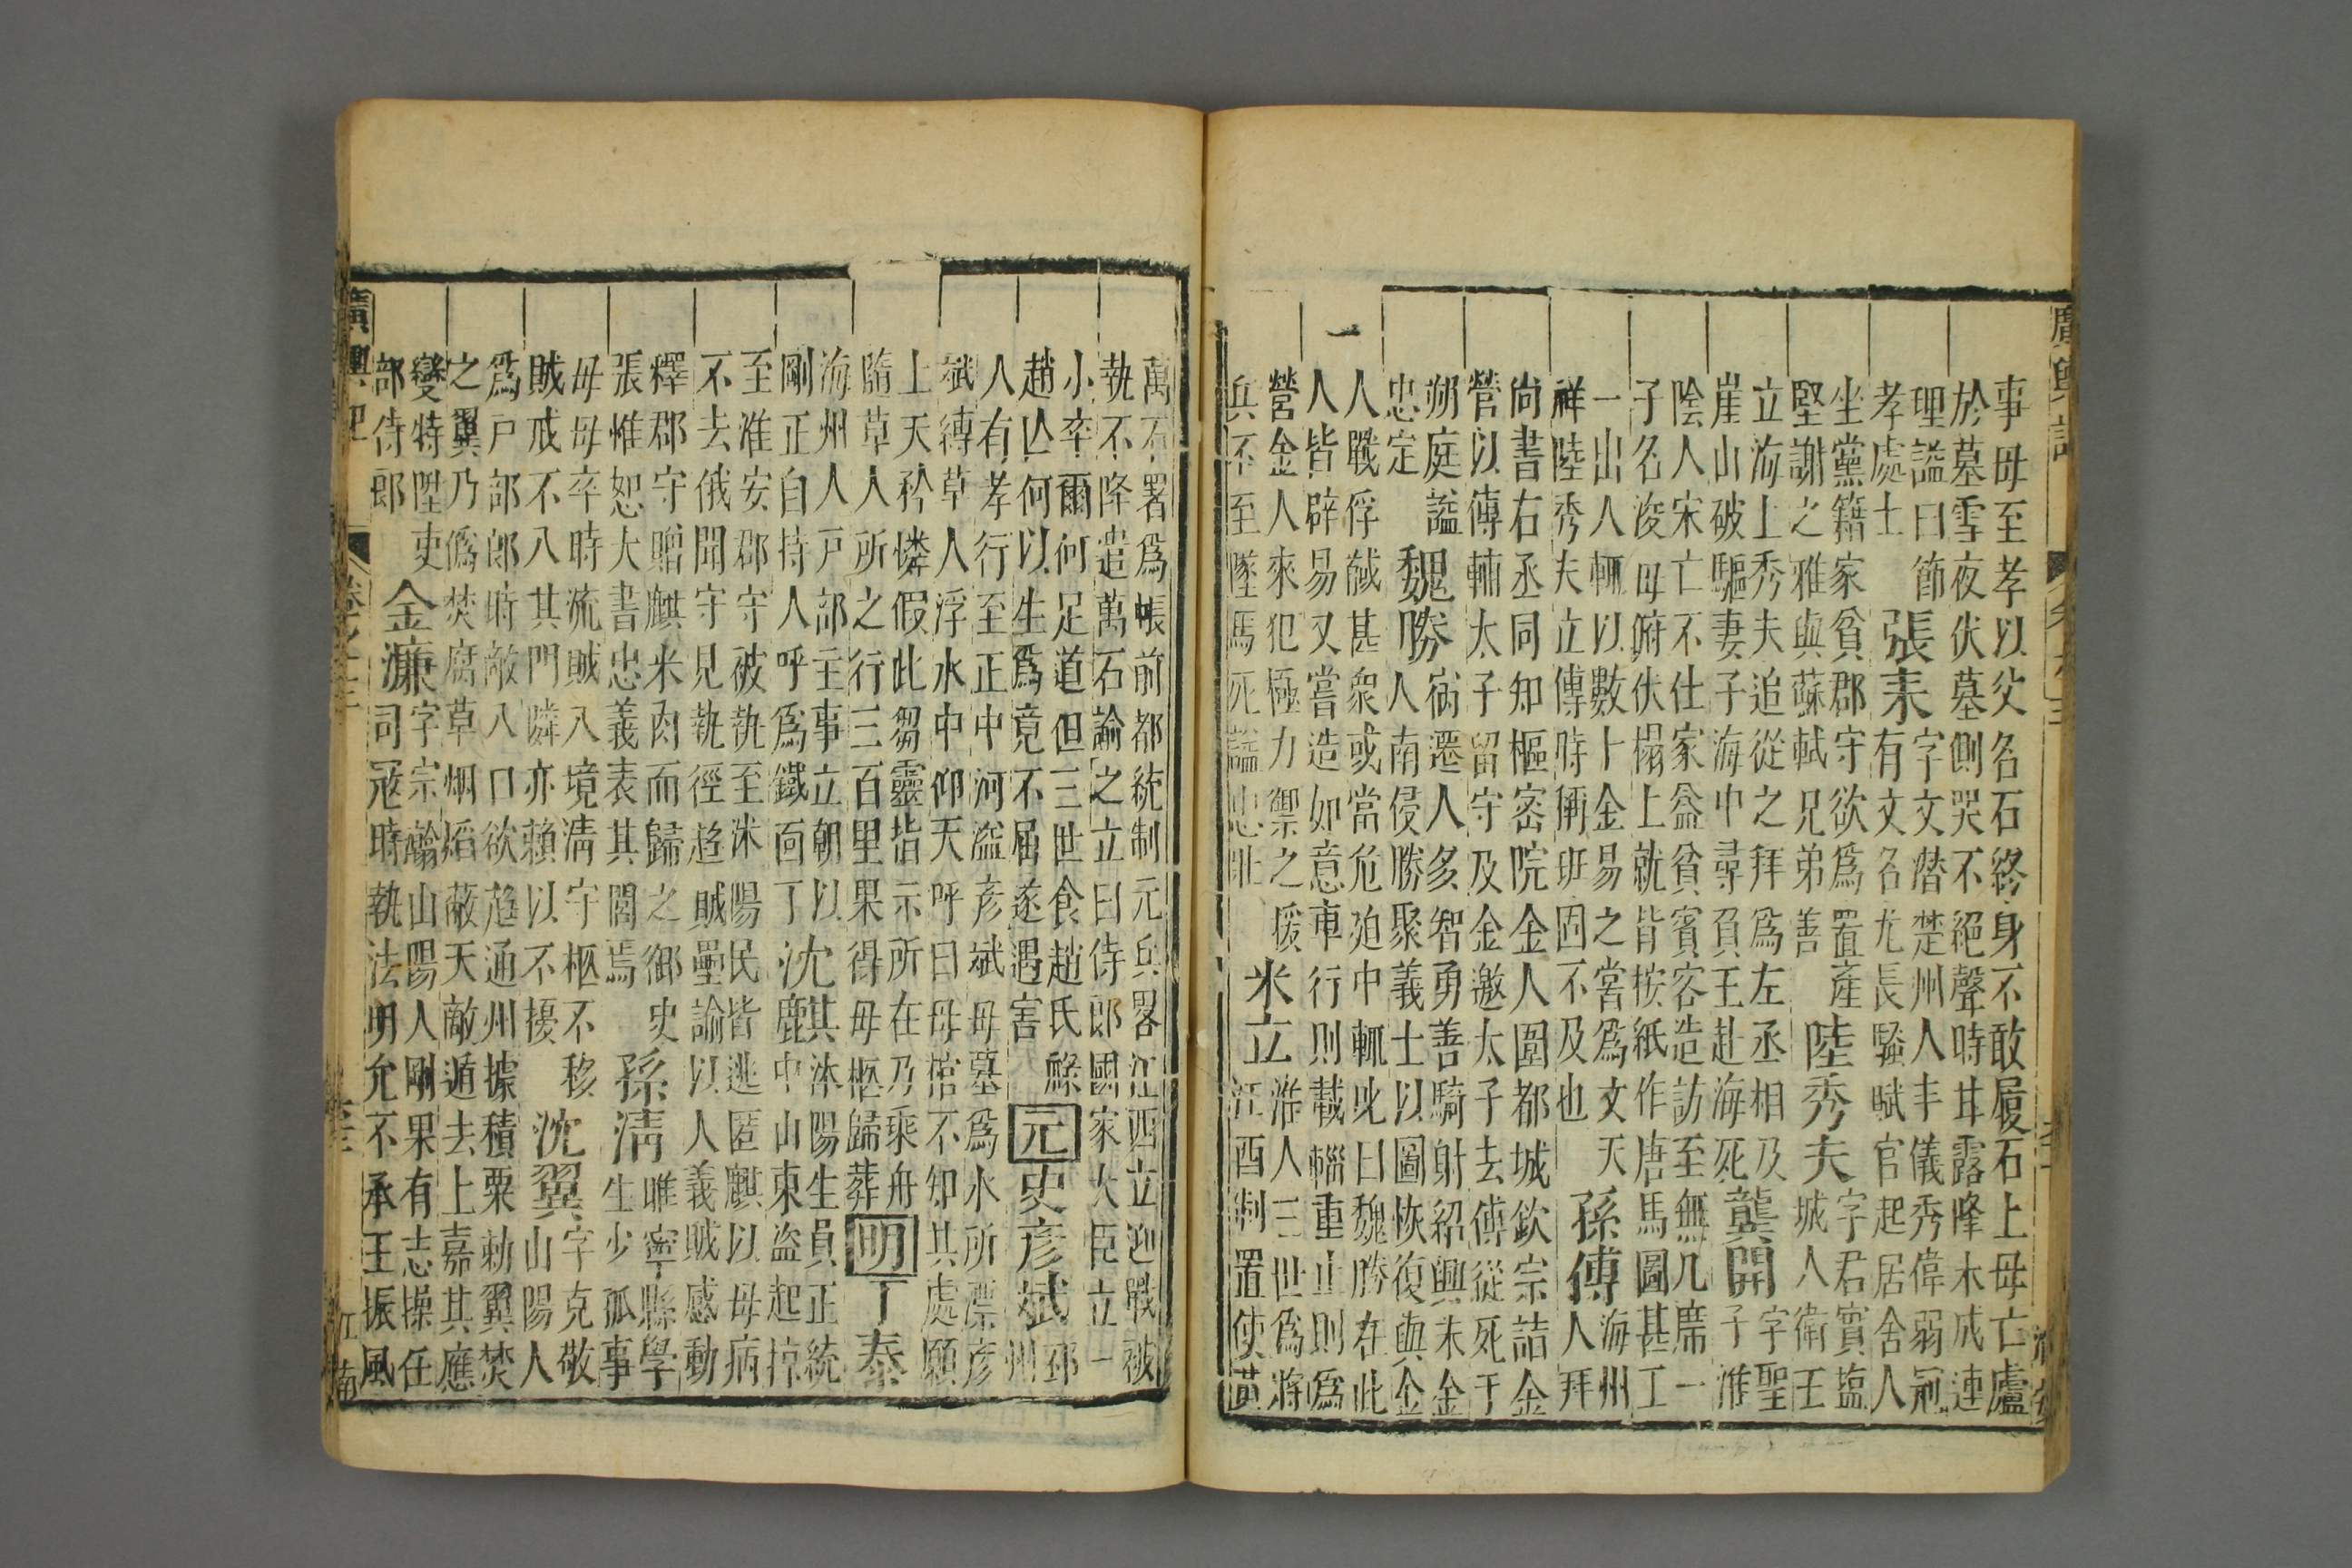 廣輿記
事母至孝以父名石終身不敢履石上母亡廬
於墓雪夜伏墓側哭不絕聲時甘露降木成連
理謚曰節
孝處士
張耒
字文潛楚州人丰儀秀偉弱冠
有文名尤長騷賦官起居舍人
坐黨籍家貧郡守欲爲置產
堅謝之雅與蘇軾兄弟善
陸秀夫
字君實塩
城人衛王
立海上秀夫追從之拜爲左丞相及
崖山破驅妻子海中尋負王赴海死
龔開
字聖
子淮
陰人宋亡不仕家益貧賓客造訪至無几席一
子名浚毋俯伏榻上就背按紙作唐馬圖甚工
一出人輒以數十金易之嘗爲文天
祥陸秀夫立傳時儕班固不及也
孫傅
海州
人拜
尚書右丞同知樞密院金人圍都城欽宗詣金
營以傅輔太子留守及金邀太子去傅從死于
朔庭謚
忠定
魏勝
宿遷人多智勇善騎射紹興末金
人南侵勝聚義士以圖恢復與金
人戰俘馘甚衆或當危迫中輒叱曰魏勝在此
人皆辟易又嘗造如意車行則載輜重止則爲
營金人來犯極力禦之援
兵不至墜馬死謚忠壯
米立
淮人三世爲將
江西制置使黃
萬石署爲帳前都統制元兵畧江西立迎戰被
執不降遣萬石論之立曰侍郎國家大臣立一
小卒爾何足道但三世食趙氏祿
趙亾何以生爲竟不屈遂遇害
元
史彥斌
邳
州
人有孝行至正中河溢彥斌母墓爲水所漂彥
斌縛草人浮水中仰天呼曰母棺不知其處願
上天矜憐假此芻靈指示所在乃乘舟
隨草人所之行三百里果得母柩歸葬
明
丁泰
海州人戸部主事立朝以
剛正自持人呼爲鐵面丁
沈麒
沭陽生員正統
中山東盜起掠
至淮安郡守被執至沭陽民皆逃匿麒以母病
不去俄聞守見執徑趍賊壘諭以人義賊感動
釋郡守贈麒米肉而歸之御史
張惟恕大書忠義表其閭焉
孫清
睢寧縣學
生少孤事
母母卒時流賊入境清守柩不移
賊戒不入其門隣亦賴以不擾
沈翼
字克敬
山陽人
爲戸部郎時敵入口欲趍通州據積粟勑翼焚
之翼乃僞焚腐草烟焰蔽天敵遁去上嘉其應
變特陞吏
部侍郎
金濂
字宗翰山陽人剛果有志操任
司寇時執法明允不承王振風
廣輿記
江南